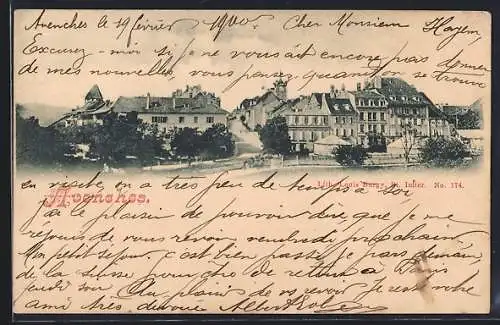 Avenches le 19 février 1900. Cher Monsieur Hayem
Excusez-moi si je ne vous ai encore pas donner
de mes nouvelles, vous pensez, quand on se trouve
en visite, on a très peu de temps à soi
Lith. Louis Burgy, St. Imier. No. 174.
Avenches.
J'ai le plaisir de pouvoir dire, que je me
rejouis de vous revoir vendredi prochain.
Mon petit séjour c'est bien passé je pars demain
de la Suisse pour de retour à Paris
jeudi soir Au plaisir de vous revoir je reste votre
ami très devoué Albert